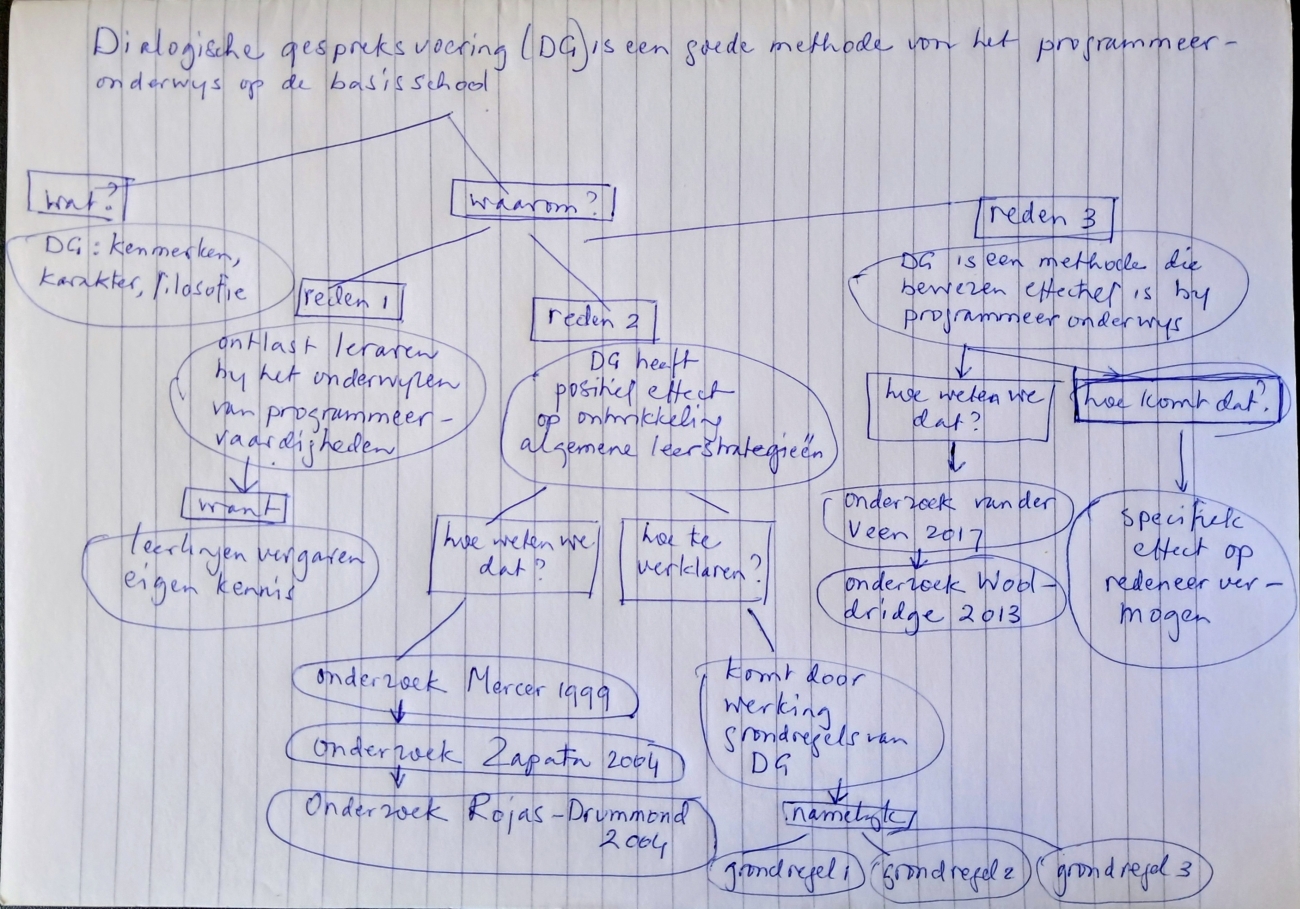 Dialogische gespreksvoering (DG) is een goede methode voor het programmeer-
onderwijs op de basisschool
wat?
DG: kenmerken,
karakter, filosofie
waarom?
reden 1
ontlast leraren
bij het onderwijzen
van programmeer-
vaardigheden
want
leerlingen vergaren
eigen kennis
reden 2
DG heeft
positief effect
op ontwikkeling
algemene leerstrategieën
hoe weten we
dat?
onderzoek Mercer 1999
onderzoek Zapata 2004
Onderzoek Rojas-Drummond
2004
hoe te
verklaren?
komt door
werking
grondregels van
DG
namelijk
grondregel 1
grondregel 2
grondregel 3
reden 3
DG is een methode die
bewezen effectief is bij
programmeeronderwijs
hoe weten we
dat?
onderzoek van der
Veen 2017
onderzoek Wool-
dridge 2013
hoe komt dat?
specifiek
effect op
redeneerver-
mogen